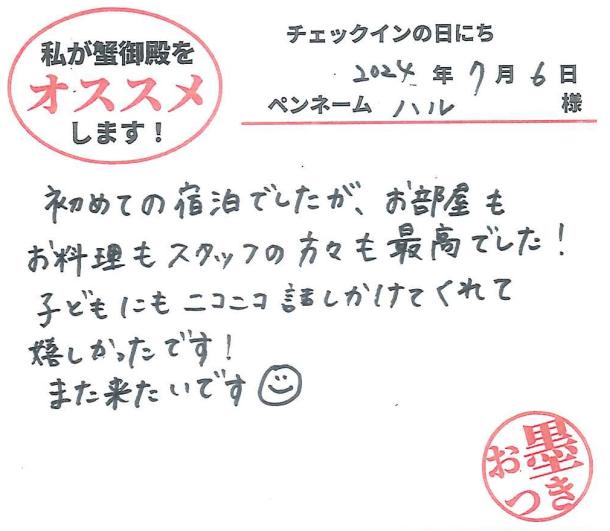 私が蟹御殿を
オススメ
します！
チェックインの日にち
2024年7月6日
ペンネーム ハル 様
初めての宿泊でしたが、お部屋も
お料理もスタッフの方々も最高でした！
子どもにもニコニコ話しかけてくれて
嬉しかったです！
また来たいです☺
お墨
つき